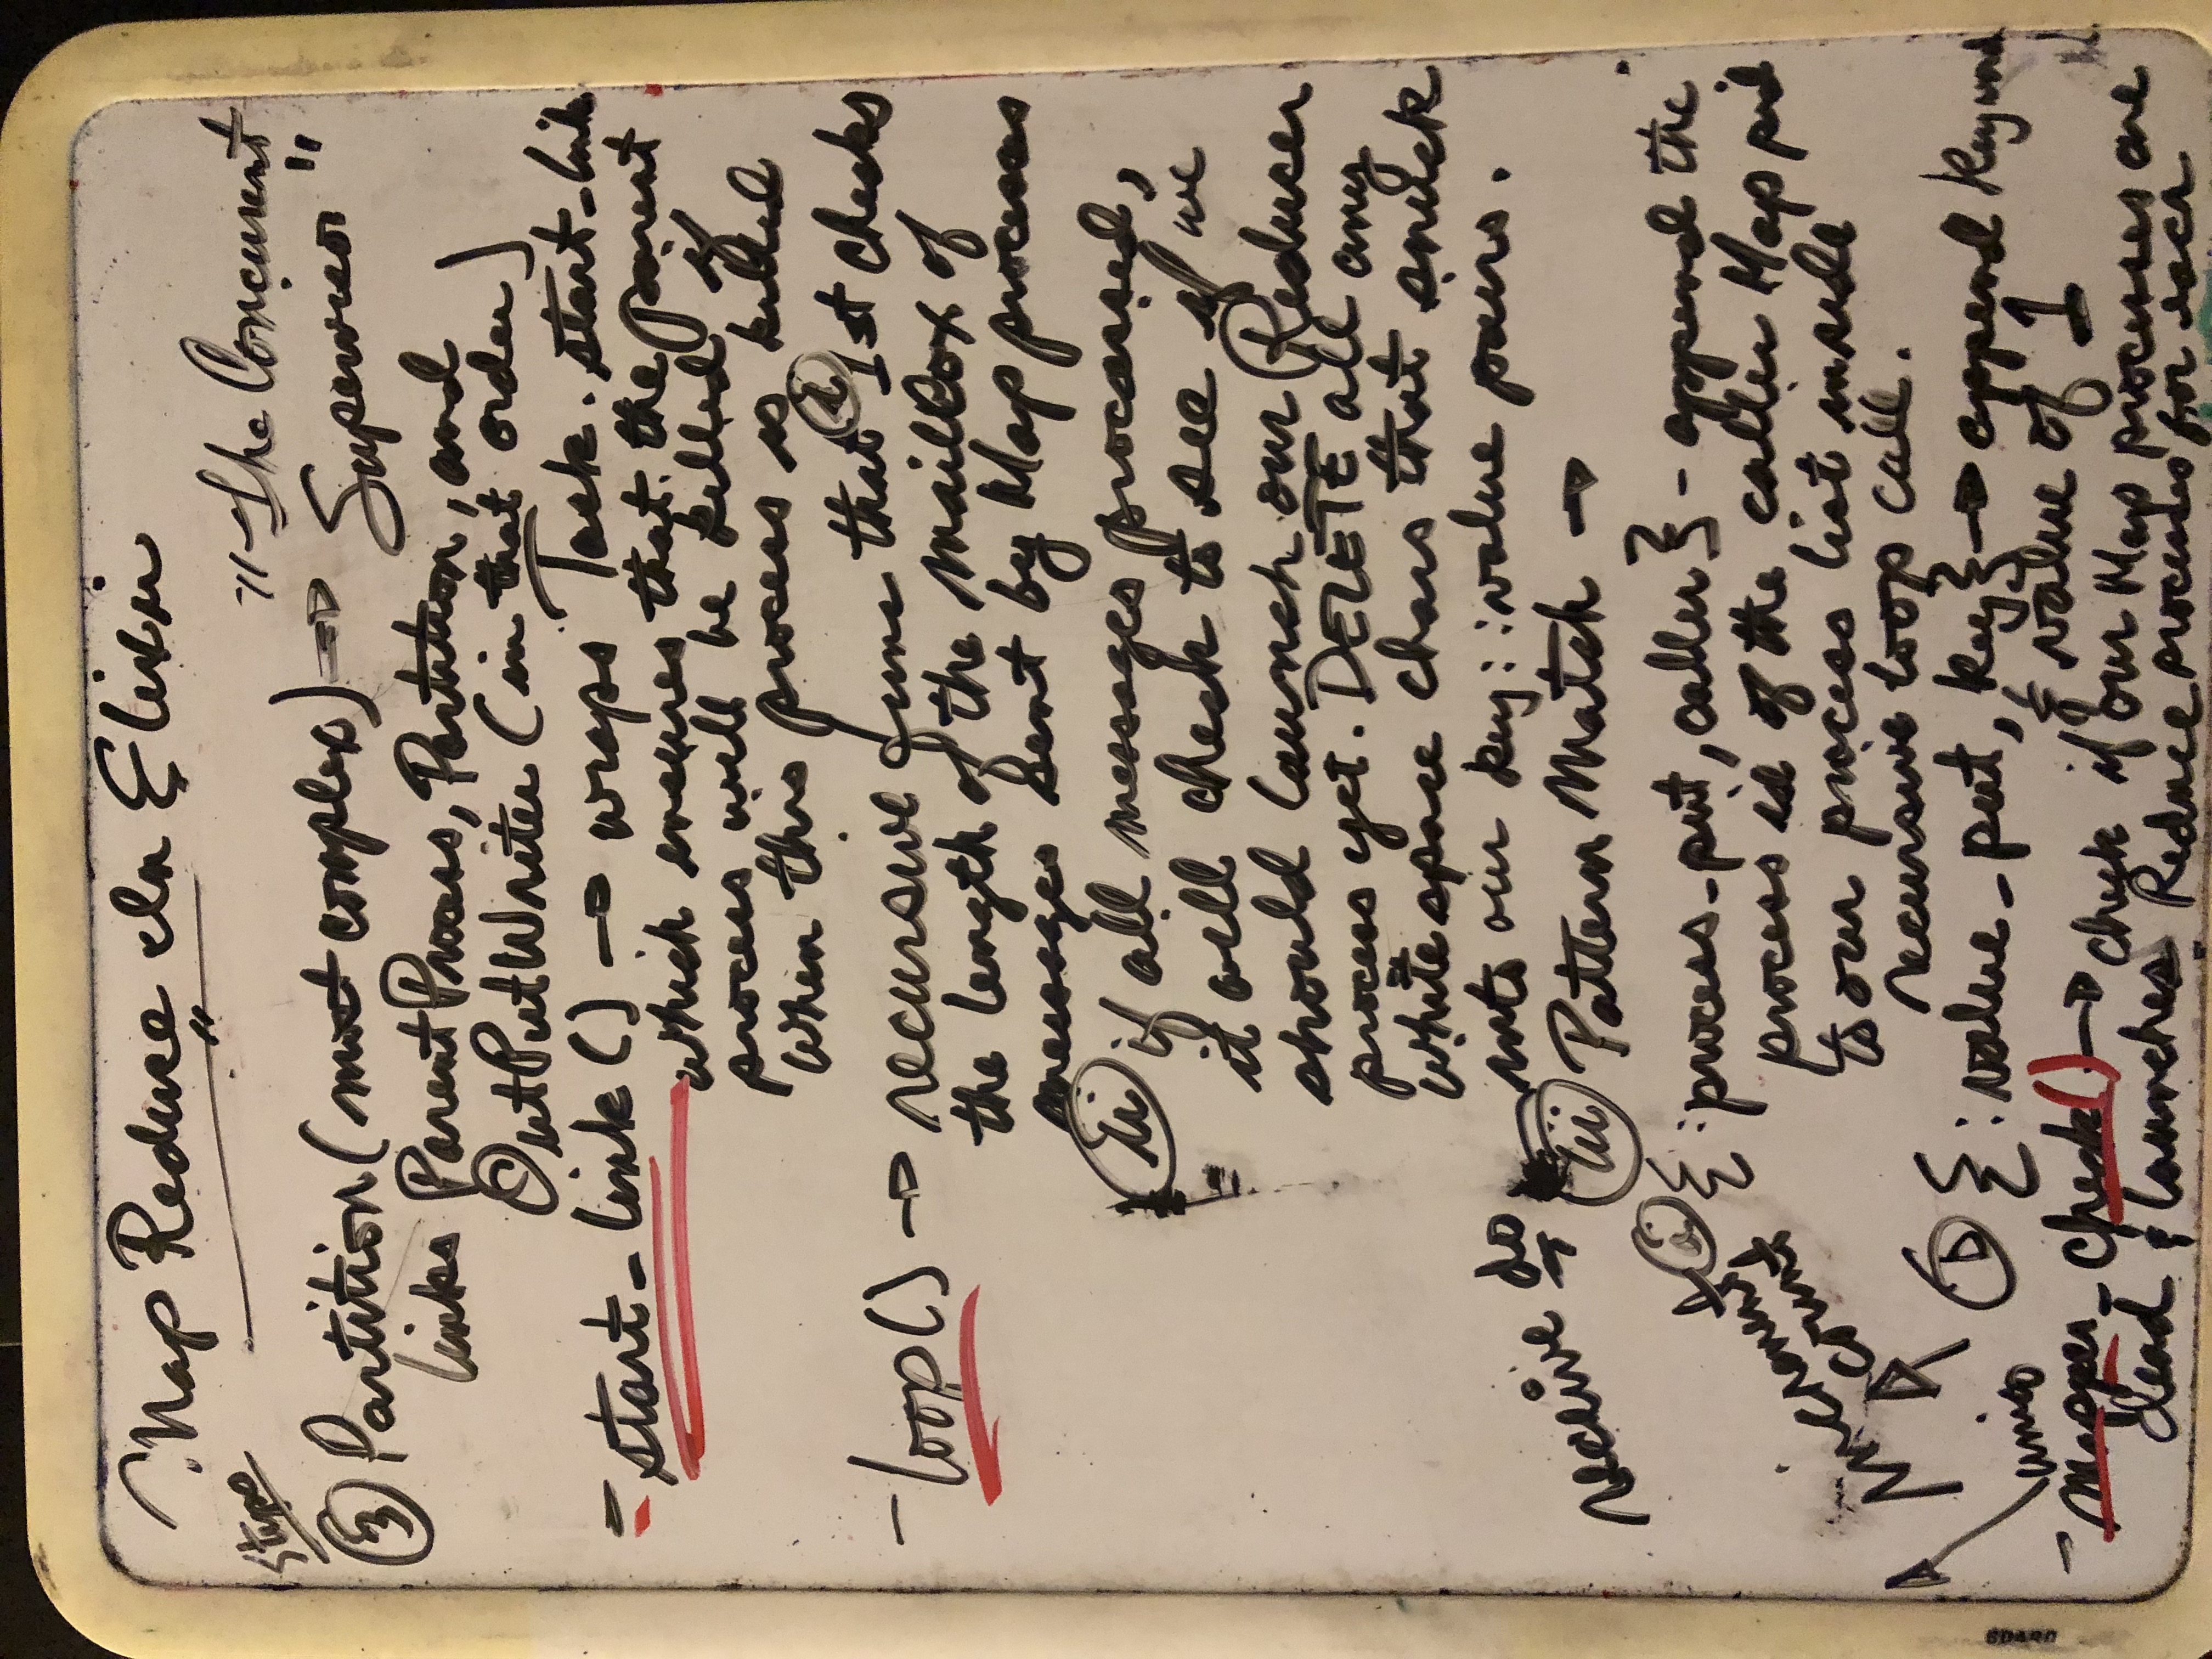 Map Reduce in Elixir
"
Steps
"The Concurrent
Supervisor"
③ Partition (most complex) ⇒
links Parent Process, Partition, and
OutPutWriter (in that order)
- start_link() → wraps Task.start_link
which ensures that the parent
process will be killed if
when this process is killed
- loop() → recursive func that ⓘ 1st checks
the length of the mailbox of
messages sent by Map processes
ⅱ if all messages processed,
it will check to see if we
should launch our Reducer
process yet. DELETE all any
white space chars that snuck
into our key::value pairs.
receive do
ⅲ Pattern Match →
a {:process_put, caller} - append the
process id of the caller Map pid
to our process list inside
recursive loop call.
increment
count
b {:value_put, key} → append Keyword
& value of 1
uniq
- mapper_check() → check if our Map processes are
dead & launches Reduce processes for each